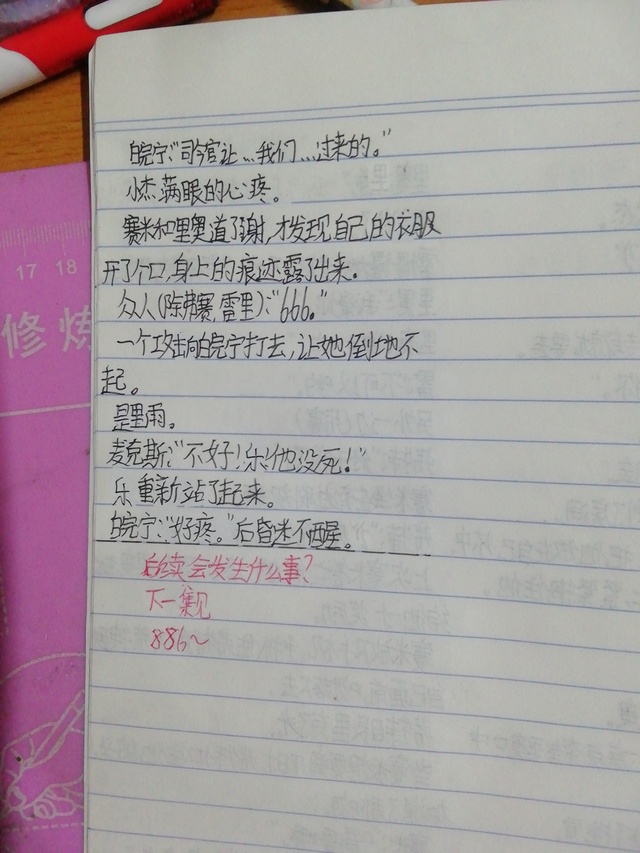 皖宁:“司令官让…我们…过来的。”
小杰满眼的心疼。
赛米和里奥道了谢,才发现自己的衣服
开了个口,身上的痕迹露了出来。
众人(除弗赛,雷里):“666。”
一个攻击向皖宁打去,让她倒地不
起。
是里雨。
麦克斯:“不好!乐!他没死!”
乐重新站了起来。
皖宁:“好疼。”后昏迷不醒。
后续会发生什么事?
下一集见
886~
17 18
修炼